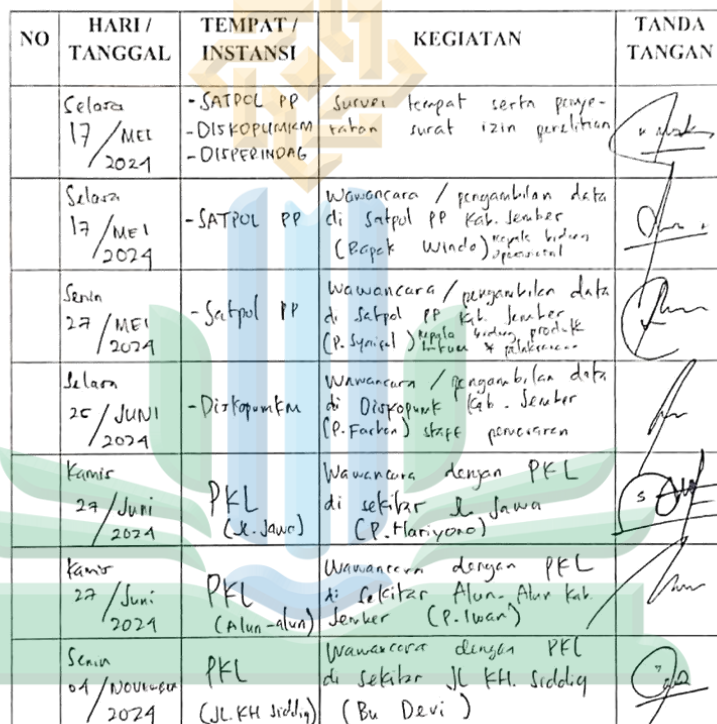 NO
HARI /
TANGGAL
TEMPAT /
INSTANSI
KEGIATAN
TANDA
TANGAN
Selasa
17 / MEI
2024
- SATPOL PP
- DISKOPUMKM
- DISPERINDAG
Survei tempat serta penye-
surat izin penelitian
Selasa
17 / MEI
2024
- SATPOL PP
Wawancara / pengambilan data
di Satpol PP Kab. Jember
(Bapak Windo) kepala bidang
operasional
Senin
27 / MEI
2024
- Satpol PP
Wawancara / pengambilan data
di Satpol PP Kab. Jember
kepala bidang produk
Selasa
/ JUNI
2024
- Diskopumkm
Wawancara / pengambilan data
di Diskopumk Kab. Jember
staff pemasaran
Kamis
27 / Juni
2024
PKL
(Jl. Jawa)
Wawancara dengan PKL
di sekitar Jl. Jawa
(P. Hariyono)
Kamis
27 / Juni
2024
PKL
(Alun-alun)
Wawancara dengan PKL
di sekitar Alun-Alun Kab.
Jember (P. Iwan)
Senin
04 / NOVEMBER
2024
PKL
(JL. KH Siddiq)
Wawancara dengan PKL
di sekitar JL KH. Siddiq
(Bu Devi)